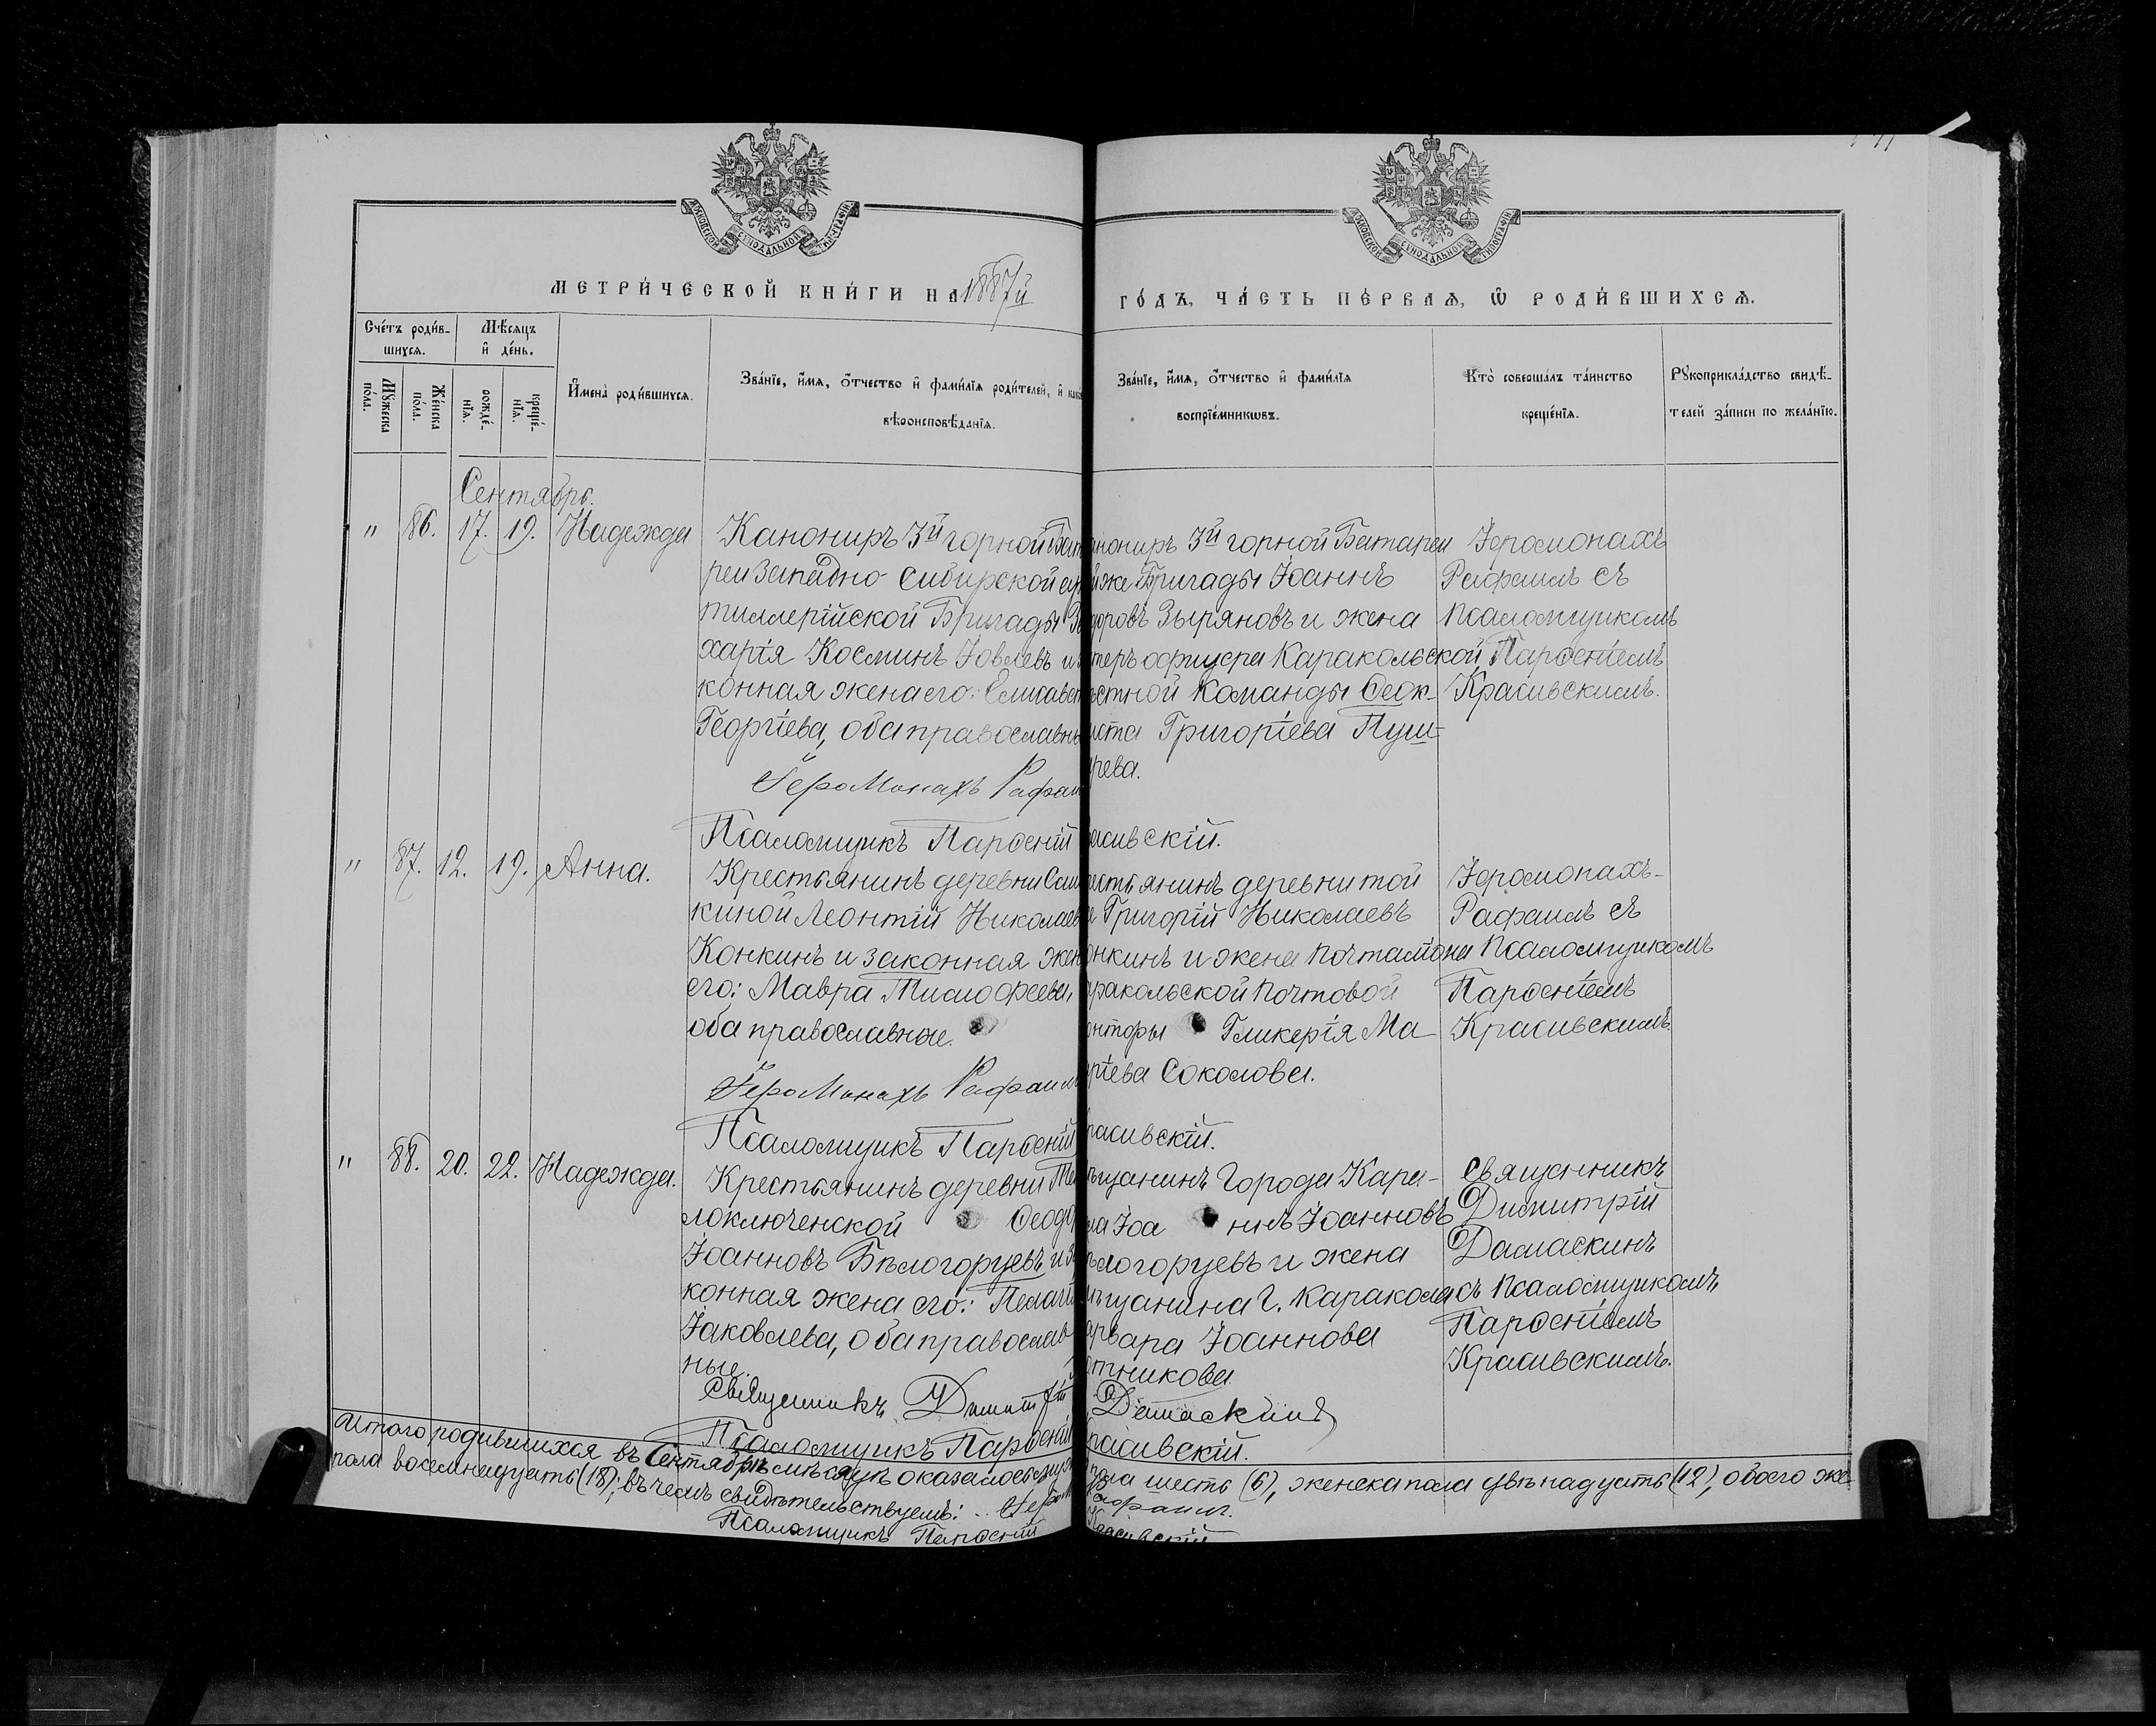 МОСКОВСКОЙ СѴНОДАЛЬНОЙ ТИПОГРАФІИ
МОСКОВСКОЙ СѴНОДАЛЬНОЙ ТИПОГРАФІИ
МЕТРИ́ЧЕСКОЙ КНИ́ГИ НА 1887й
ГО́ДЪ, ЧА́СТЬ ПЕ́РВАѦ, Ѡ҆ РОДИ́ВШИХСѦ.
Сче́тъ роди́в-
шихсѧ.
Мꙋ́жеска по́ла.
Же́нска по́ла.
Мѣ́сѧцъ
и҆ де́нь.
рожде́-
нїѧ.
креще́-
нїѧ.
И҆мена̀ роди́вшихсѧ.
Зва́нїе, и҆́мѧ, ѻ҆́тчество и҆ фами́лїѧ роди́телей, и҆
вѣроисповѣ́данїѧ.
Зва́нїе, и҆́мѧ, ѻ҆́тчество и҆ фами́лїѧ
воспрїе́мникѡвъ.
Кто̀ соверша́лъ та́инство
креще́нїѧ.
Рꙋкоприкла́дство свидѣ́-
телей за́писи по жела́нїю.
Сентябрь.
" 86. 17. 19. Надежда
Канониръ 3й горной Бат
реи Западно Сибирской ар
тиллерійской Бригады За
харія Косминъ Іовлевъ и з
конная жена его: Елисавет
Георгіева, оба православны
Іеромонахъ Рафаи
Псаломщикъ Парѳеній
нониръ 3й горной Батареи
й же Бригады Іоаннъ
доровъ Зыряновъ и жена
теръ офицера Каракольской
ѣстной Команды Ѳеок-
иста Григоріева Пуш-
рева.
расивскій.
Іеромонахъ
Рафаилъ съ
псаломщикомъ
Парѳеніемъ
Красивскимъ.
" 87. 12. 19. Анна.
Крестьянинъ деревни Саш
киной Леонтій Николаев
Конкинъ и законная жен
его: Мавра Тимофеева,
оба православные.
Іеромонахъ Рафаил
Псаломщикъ Парѳеній
рестьянинъ деревни той
е Григорій Николаевъ
онкинъ и жена почталіона
аракольской почтовой
онторы Гликерія Ма-
ріева Соколова.
расивскій.
Іеромонахъ-
Рафаилъ съ
псаломщикомъ
Парѳеніемъ
Красивскимъ.
" 88. 20. 22. Надежда.
Крестьянинъ деревни Те
лоключенской Ѳеодо
Іоанновъ Бѣлогорцевъ и за
конная жена его: Пелагі
Іаковлева, оба православ
ные.
Священникъ Димитрій
Псаломщикъ Парѳеній
ѣщанинъ Города Кара-
ла Іоа ннъ Іоанновъ
ѣлогорцевъ и жена
ѣщанина г. Каракола
арвара Іоаннова
отникова
Дамаскинъ
расивскій.
Священникъ
Димитрій
Дамаскинъ
съ псаломщикомъ
Парѳеніемъ
Красивскимъ.
Итого родившихся въ Сентябрѣ мѣсяцѣ оказалось мужеска пола шесть (6), женска пола двѣнадцать (12), обоего же
пола восемнадцать (18); въ чемъ свидѣтельствуемъ: Іером Рафаилъ.
Псаломщикъ Парѳеній Красивскій